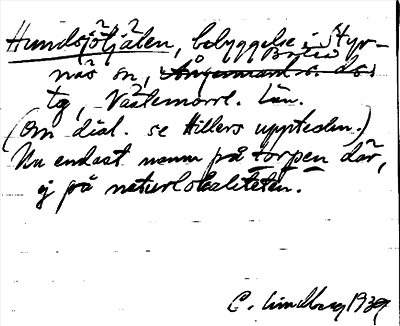 Hundsjötjälen, bebyggelse i Styr-
näs sn, Boteå
Ångermanl. s. ds.
tg, Västernorrl. län.
(Om dial. se Hillers uppteckn.)
Nu endast namn på torpen där,
ej på naturlokaliteten.
C. Lindberg 1939